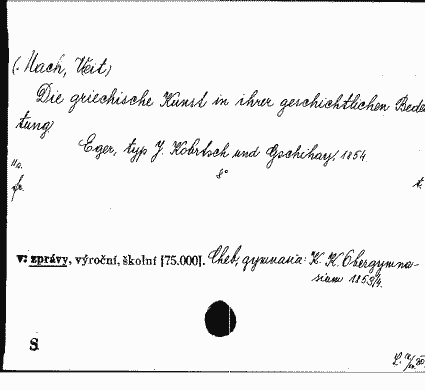 (Mach, Veit)
Die griechische Kunst in ihrer geschichtlichen Bede
tung
Eger, typ J. Kobrtsch und Gschihay, 1854
8°
fr.
t.
v: zprávy, výroční, školní [75.000]. Cheb, gymnasia: K. K. Obergymna-
sium 1853/4.
S